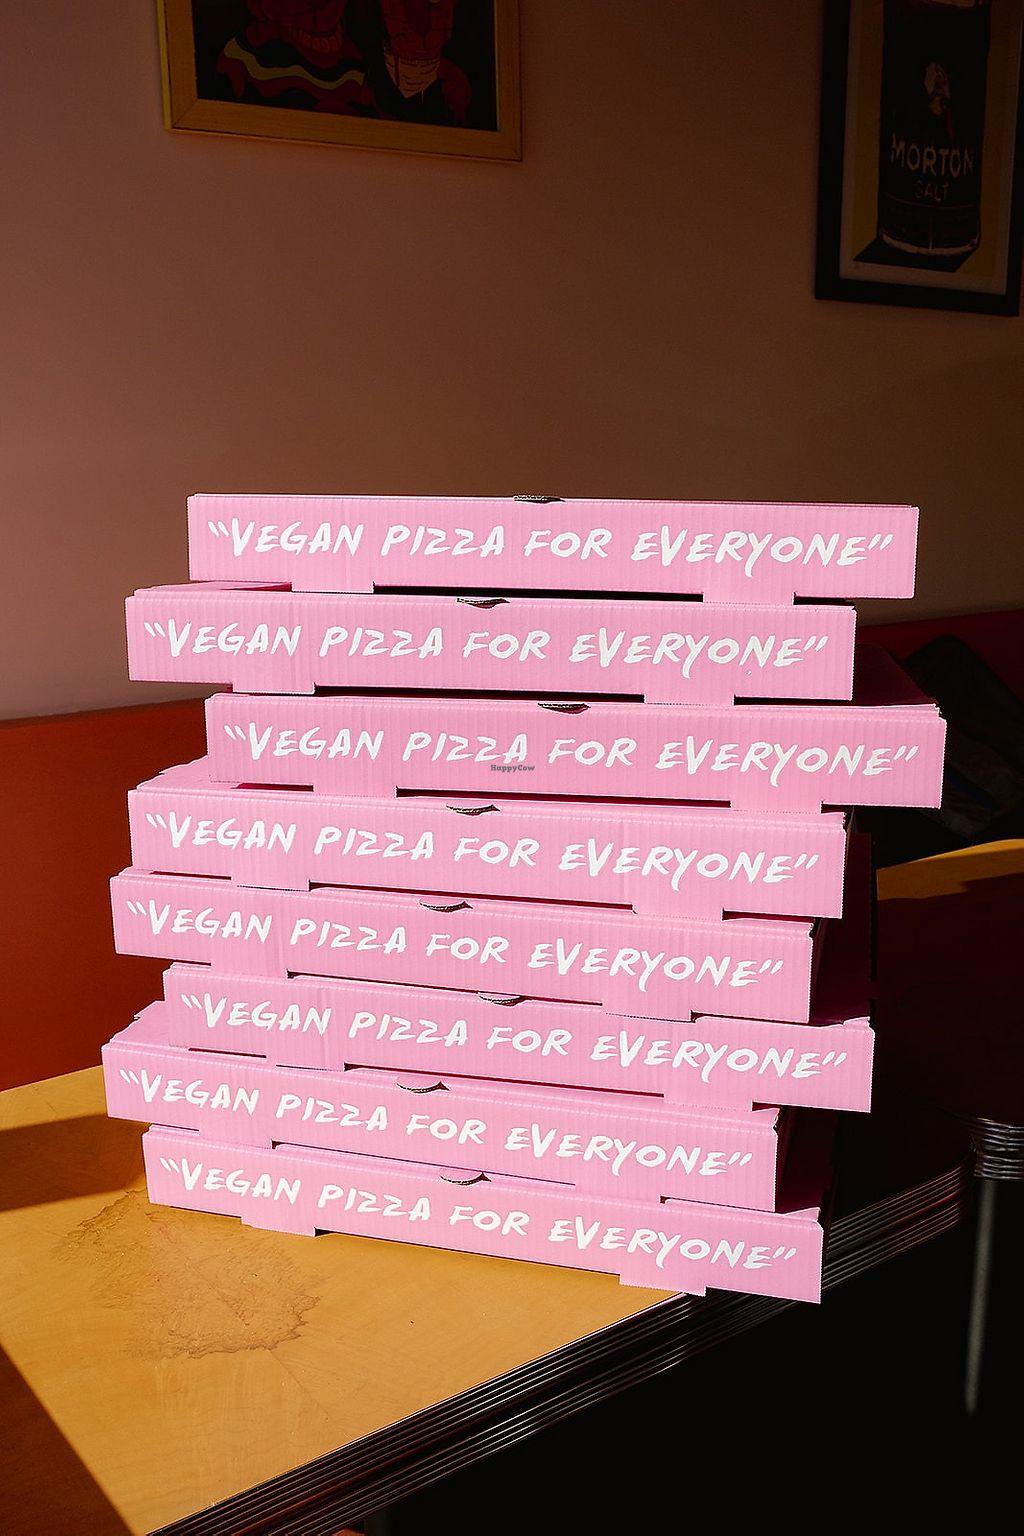 MORTON
SALT
“VEGAN PIZZA FOR EVERYONE”
“VEGAN PIZZA FOR EVERYONE”
“VEGAN PIZZA FOR EVERYONE”
HappyCow
“VEGAN PIZZA FOR EVERYONE”
“VEGAN PIZZA FOR EVERYONE”
“VEGAN PIZZA FOR EVERYONE”
“VEGAN PIZZA FOR EVERYONE”
“VEGAN PIZZA FOR EVERYONE”